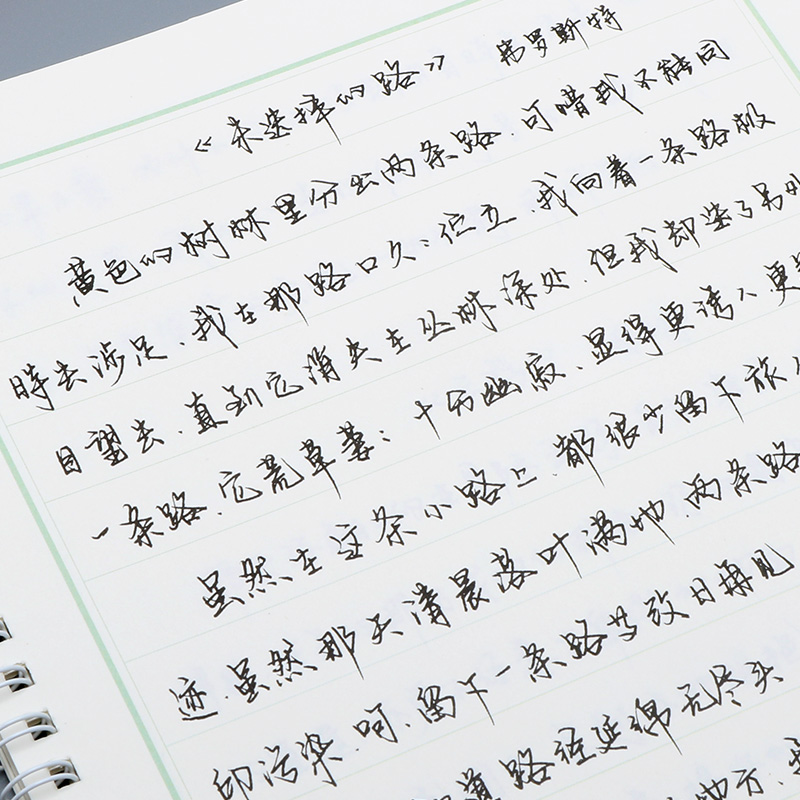 《未选择的路》 弗罗斯特
黄色的树林里分出两条路.可惜我不能同
时去涉足、我在那路口久:伫立.我向着一条路极
目望去.直到它消失在丛林深处.但我却选了另外
一条路.它荒草萋:十分幽寂、显得更诱人更
虽然在这条小路上.都很少留下旅人
迹.虽然那天清晨落叶满地.两条路
印污染.呵.留下一条路等改日再见
道路径延绵无尽头
地方.